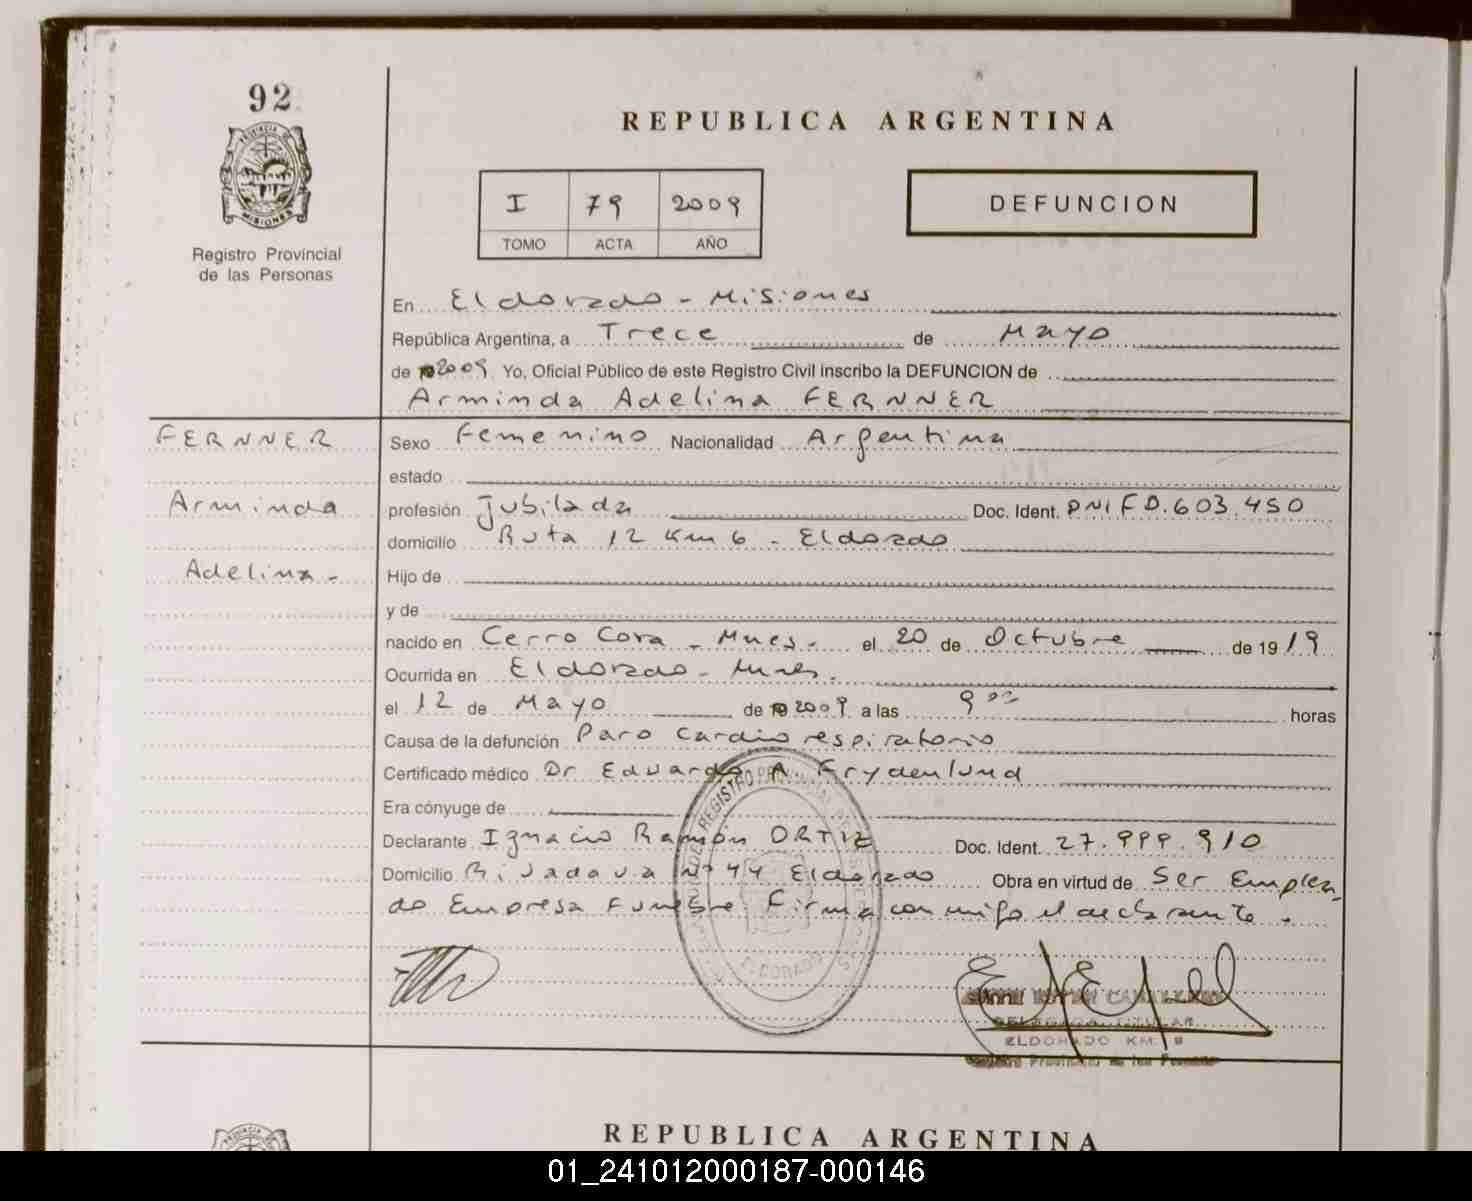 92
REPUBLICA ARGENTINA
PROVINCIA DE
MISIONES
Registro Provincial
de las Personas
I 79 2009
TOMO ACTA AÑO
DEFUNCION
En Eldorado - Misiones
República Argentina, a Trece de Mayo
de 2009 Yo, Oficial Público de este Registro Civil inscribo la DEFUNCION de
Arminda Adelina FERNNER
FERNNER
Arminda
Adelina -
Sexo Femenino Nacionalidad Argentina
estado
profesión Jubilada Doc. Ident. DNI FD.603.450
domicilio Ruta 12 Km 6 - Eldorado
Hijo de
y de
nacido en Cerro Cora - Mnes - el 20 de Octubre de 1919
Ocurrida en Eldorado - Mnes.
el 12 de Mayo de 2009 a las 9 00 horas
Causa de la defunción Paro cardio respiratorio
Certificado médico Dr Eduardo A. Frydenlund
Era cónyuge de
Declarante Ignacio Ramón ORTIZ Doc. Ident. 27.999.910
Domicilio Rivadavia Nº 44 Eldorado Obra en virtud de Ser Emplea
do Empresa Funebre. Firma conmigo el declarante.
REGISTRO PROVINCIAL DE LAS
ELDORADO
DELEGADA TITULAR
ELDORADO KM.
Registro Provincial de las Personas
REPUBLICA ARGENTINA
01_241012000187-000146